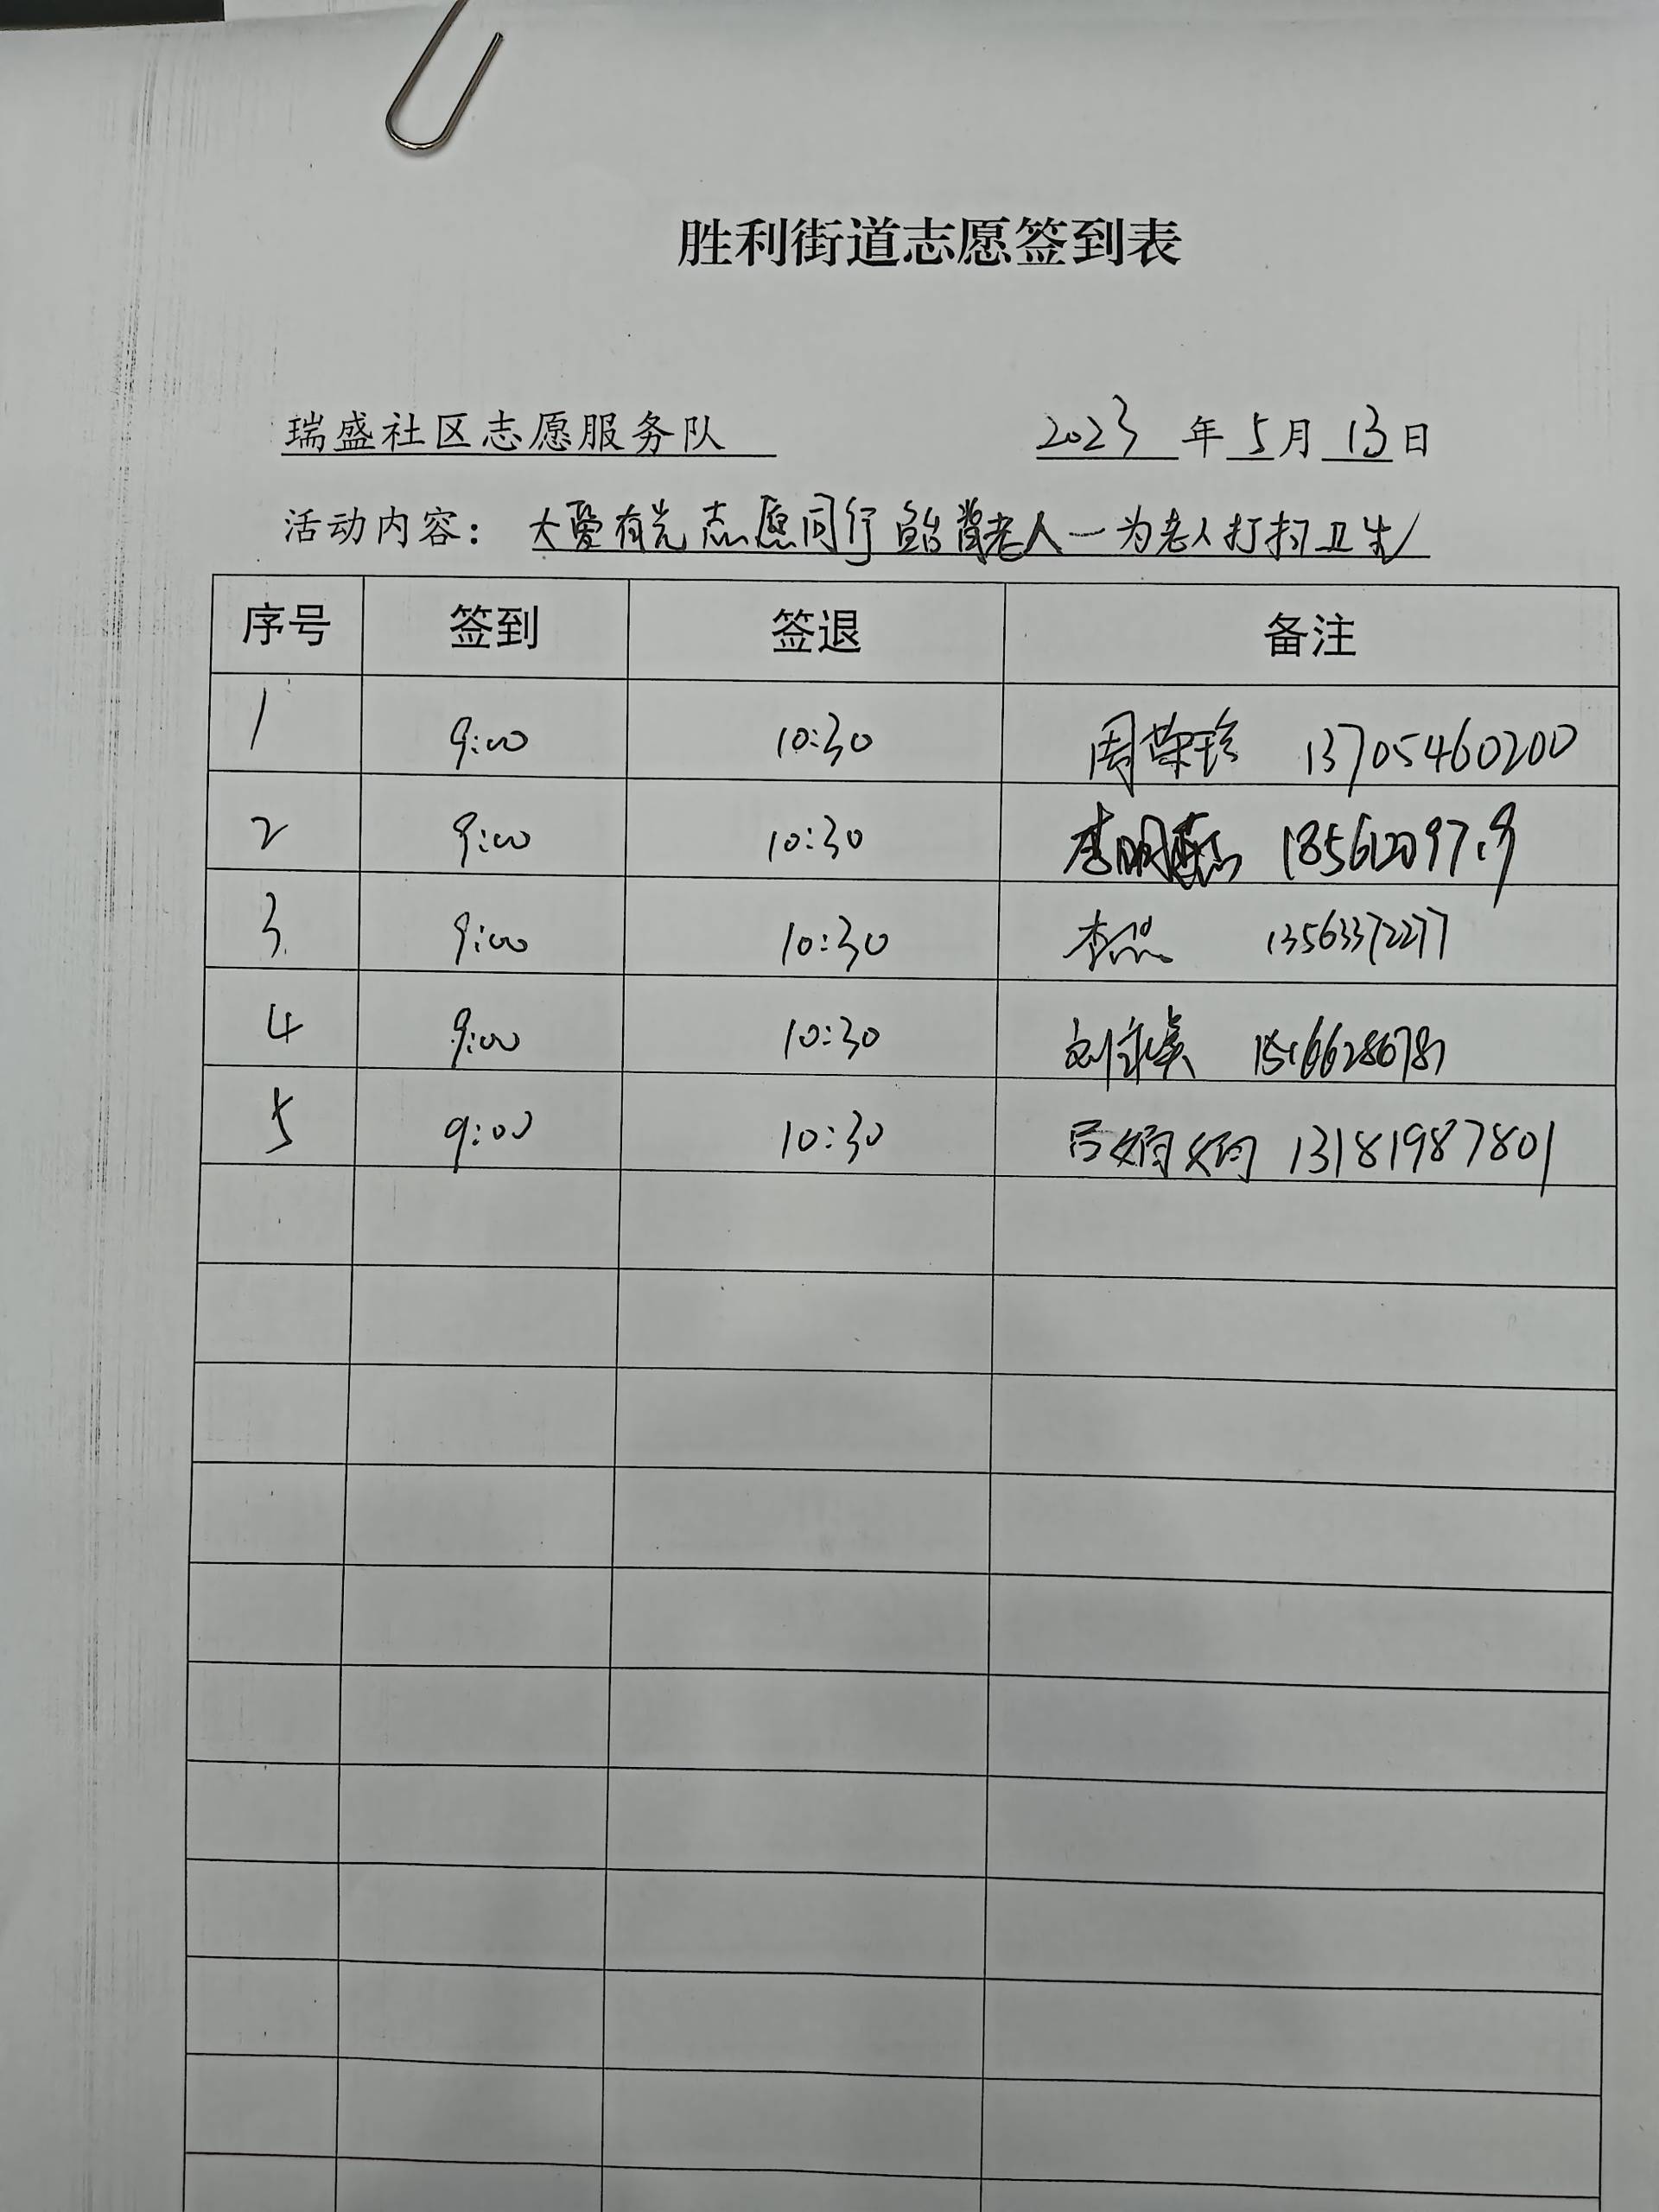 胜利街道志愿签到表
瑞盛社区志愿服务队 2023 年 5 月 13 日
活动内容： 大爱有光 志愿同行 鲐背老人一为老人打扫卫生
序号 签到 签退 备注
1 9:00 10:30 周荣珍 13705460200
2 9:00 10:30 李明
3 9:00 10:30 李 13563372277
4 9:00 10:30 刘
5 9:00 10:30 吕娟娟 13181987801